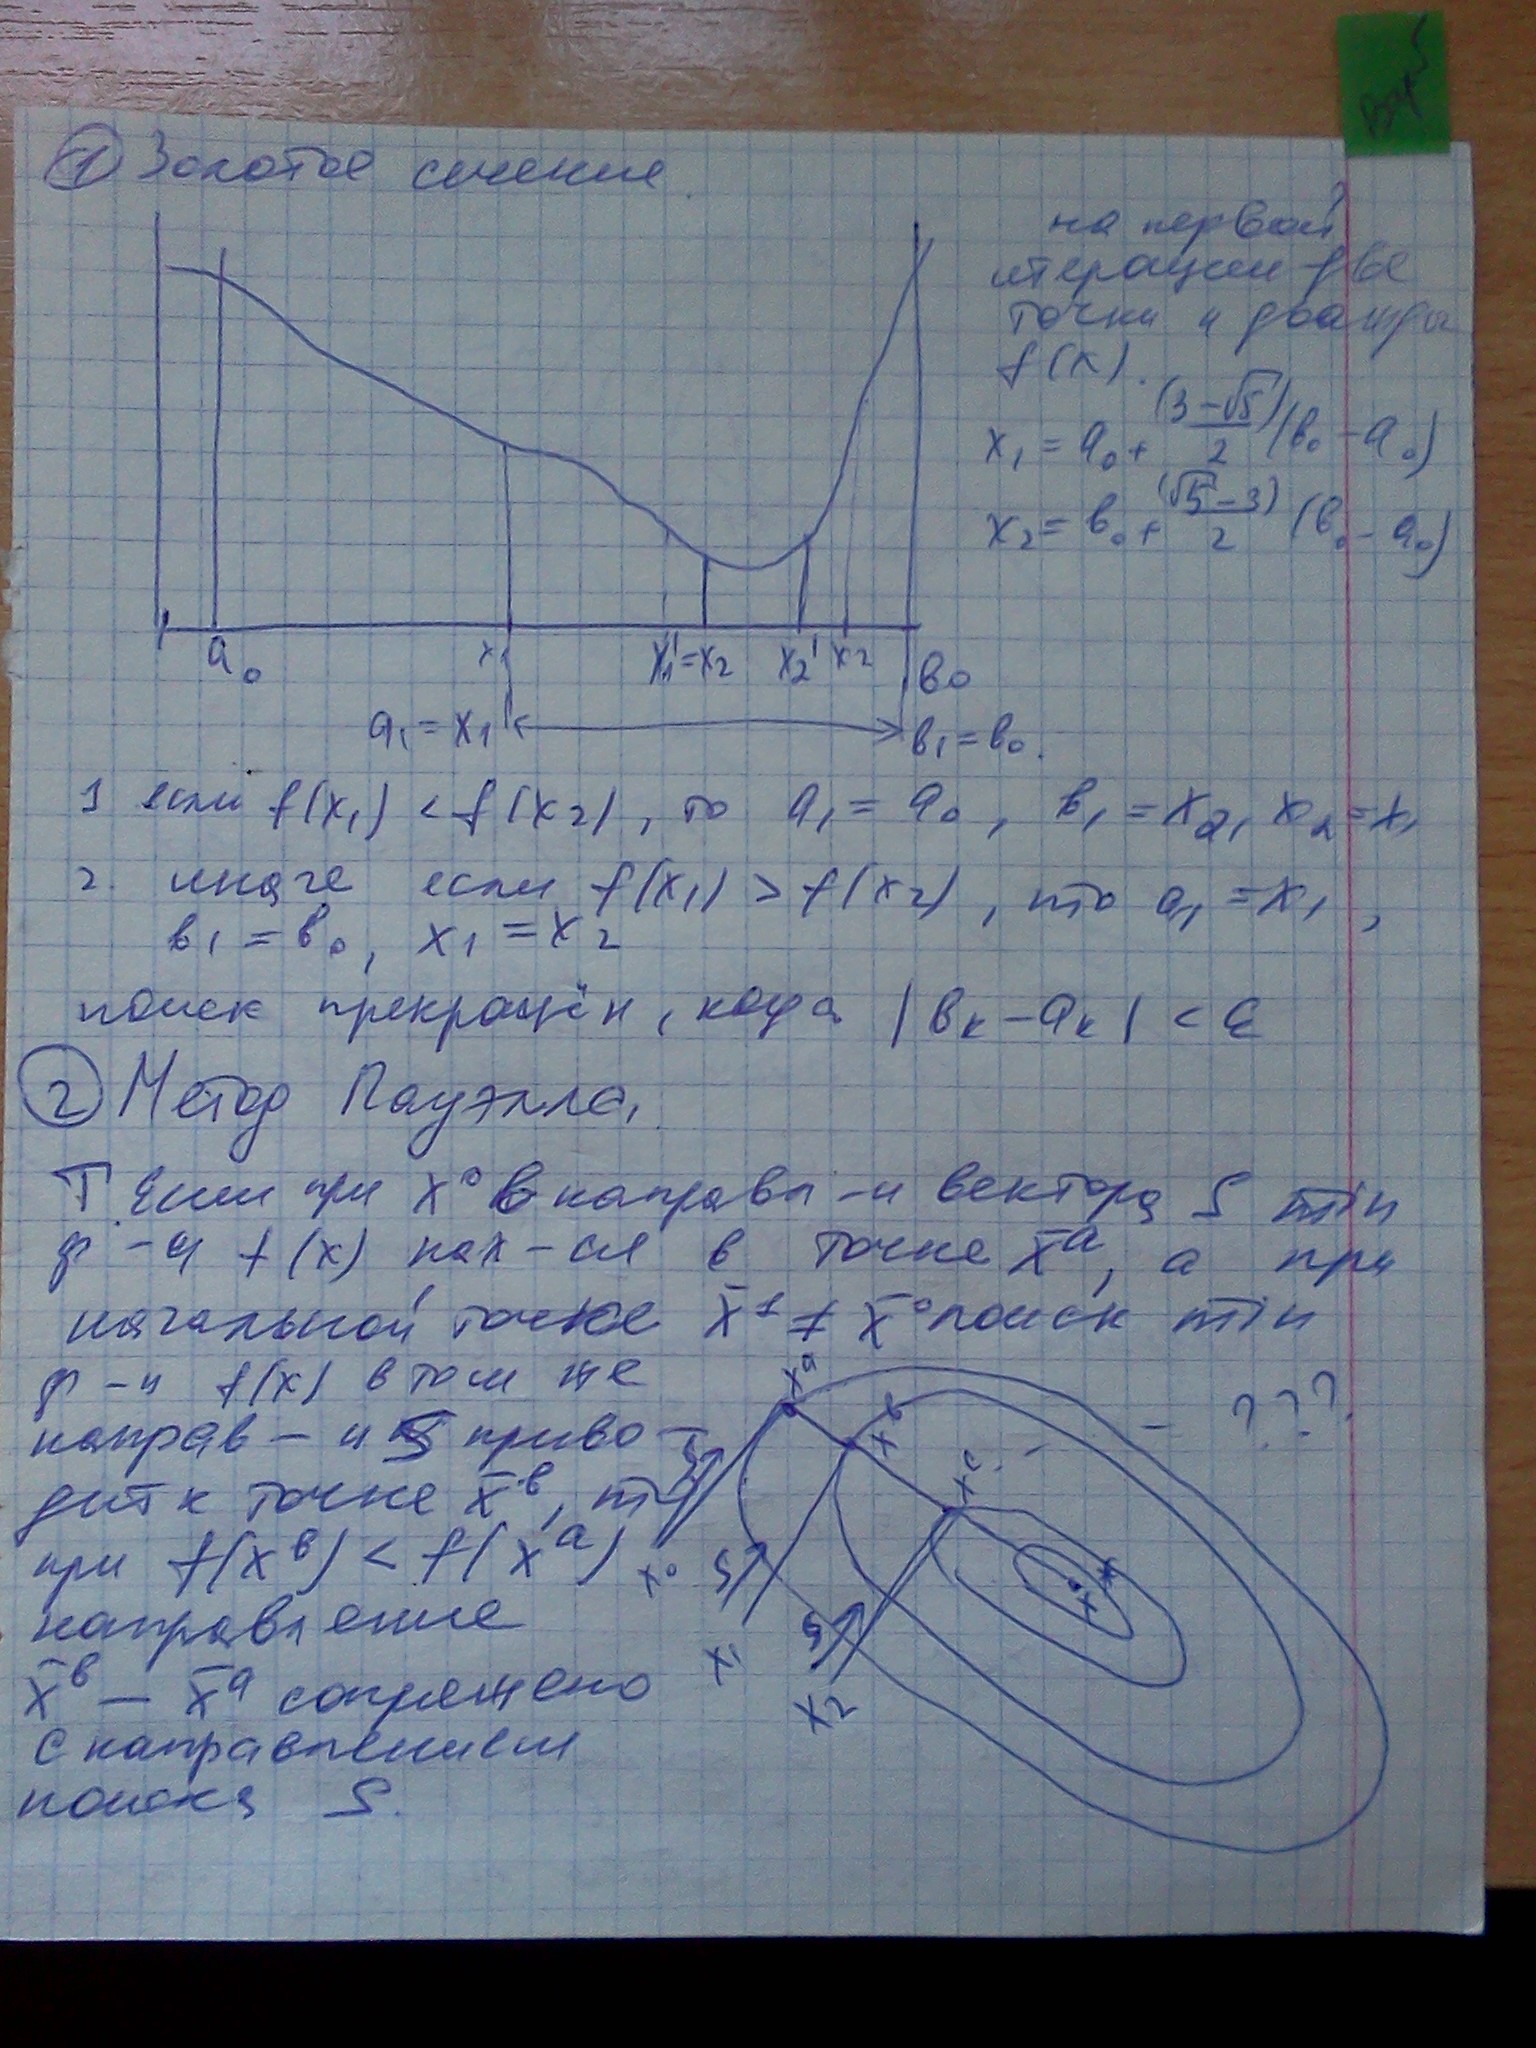 Вар 5
① Золотое сечение
на первой
итерации две
точки и дважды
f(x).
x₁ = a₀ + (3-√5)/2 (b₀ - a₀)
x₂ = b₀ + (√5-3)/2 (b₀ - a₀)
a₀ x₁ x₁' = x₂ x₂' x₂ b₀
a₁ = x₁ b₁ = b₀.
1 если f(x₁) < f(x₂), то a₁ = a₀, b₁ = x₂, x₂ = x₁
2. иначе если f(x₁) > f(x₂), то a₁ = x₁,
b₁ = b₀, x₁ = x₂
поиск прекращён, когда |bₖ - aₖ| < ε
② Метод Пауэлла.
Т. Если при x⁰ в направл-и вектора S min
ф-и f(x) нах-ся в точке x̄ᵃ, а при
начальной точке x̄¹ ≠ x̄⁰ поиск min
ф-и f(x) в том же
направ-и S приво-
дит к точке x̄ᵇ, то
при f(xᵇ) < f(xᵃ)
направление
x̄ᵇ - x̄ᵃ сопряжено
с направлением
поиска S.
xᵃ
xᵇ
- ???
xᶜ
S
x⁰
S
x*
x₁
S
x₂